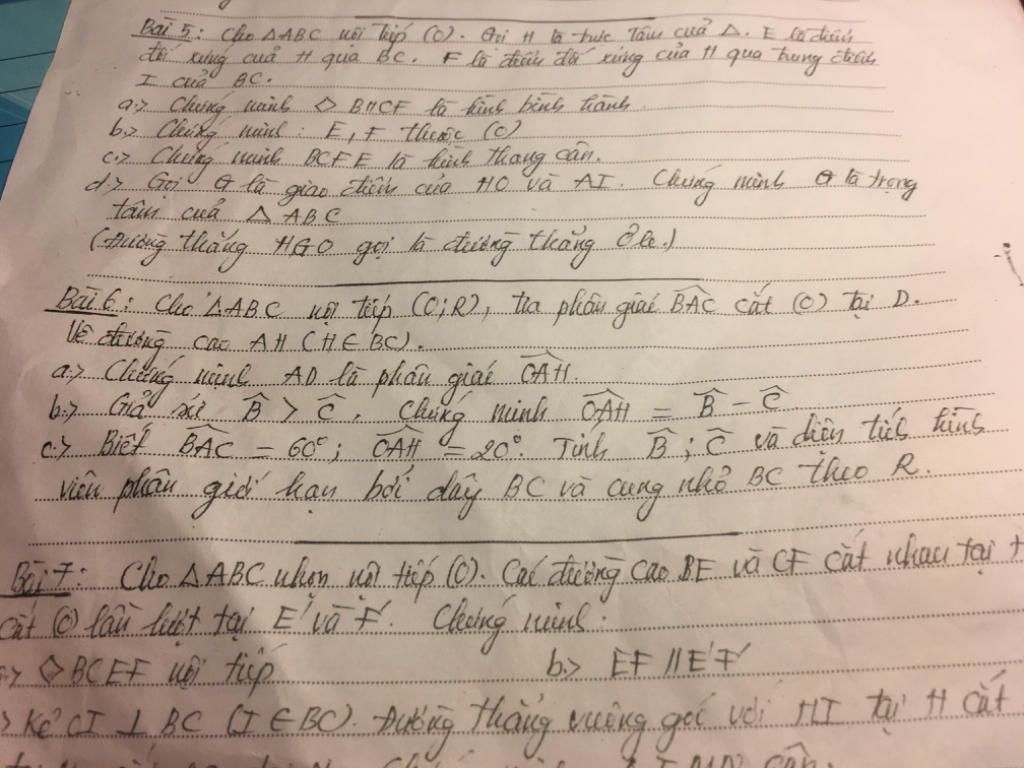 Bài 5: Cho △ABC nội tiếp (O). Gọi H là trực tâm cuả △. E là điểm
đối xứng cuả H qua BC. F là điểm đối xứng của H qua trung điểm
I cuả BC.
a.> Chứng minh ◇ BHCF là hình bình hành.
b.> Chứng minh: E, F thuộc (O)
c.> Chứng minh BCFE là hình thang cân.
d.> Gọi G là giao điểm của HO và AI. Chứng minh G là trọng
tâm cuả △ ABC
(Đường thẳng HGO gọi là đường thẳng Ơle.)
Bài 6: Cho △ABC nội tiếp (O;R), tia phân giác BAC cắt (O) tại D.
Vẽ đường cao AH (H∈BC).
a.> Chứng minh AD là phân giác OAH.
b.> Giả sử B > C. Chứng minh OAH = B - C
c.> Biết BAC = 60°; OAH = 20°. Tính B; C và diện tích hình
viên phân giới hạn bởi dây BC và cung nhỏ BC theo R.
Bài 7: Cho △ABC nhọn nội tiếp (O). Các đường cao BE và CF cắt nhau tại
cắt (O) lần lượt tại E' và F'. Chứng minh:
◇BCEF nội tiếp b.> EF // E'F'
> Kẻ CI ⊥ BC (I ∈ BC). Đường thẳng vuông góc với HI tại H cắt